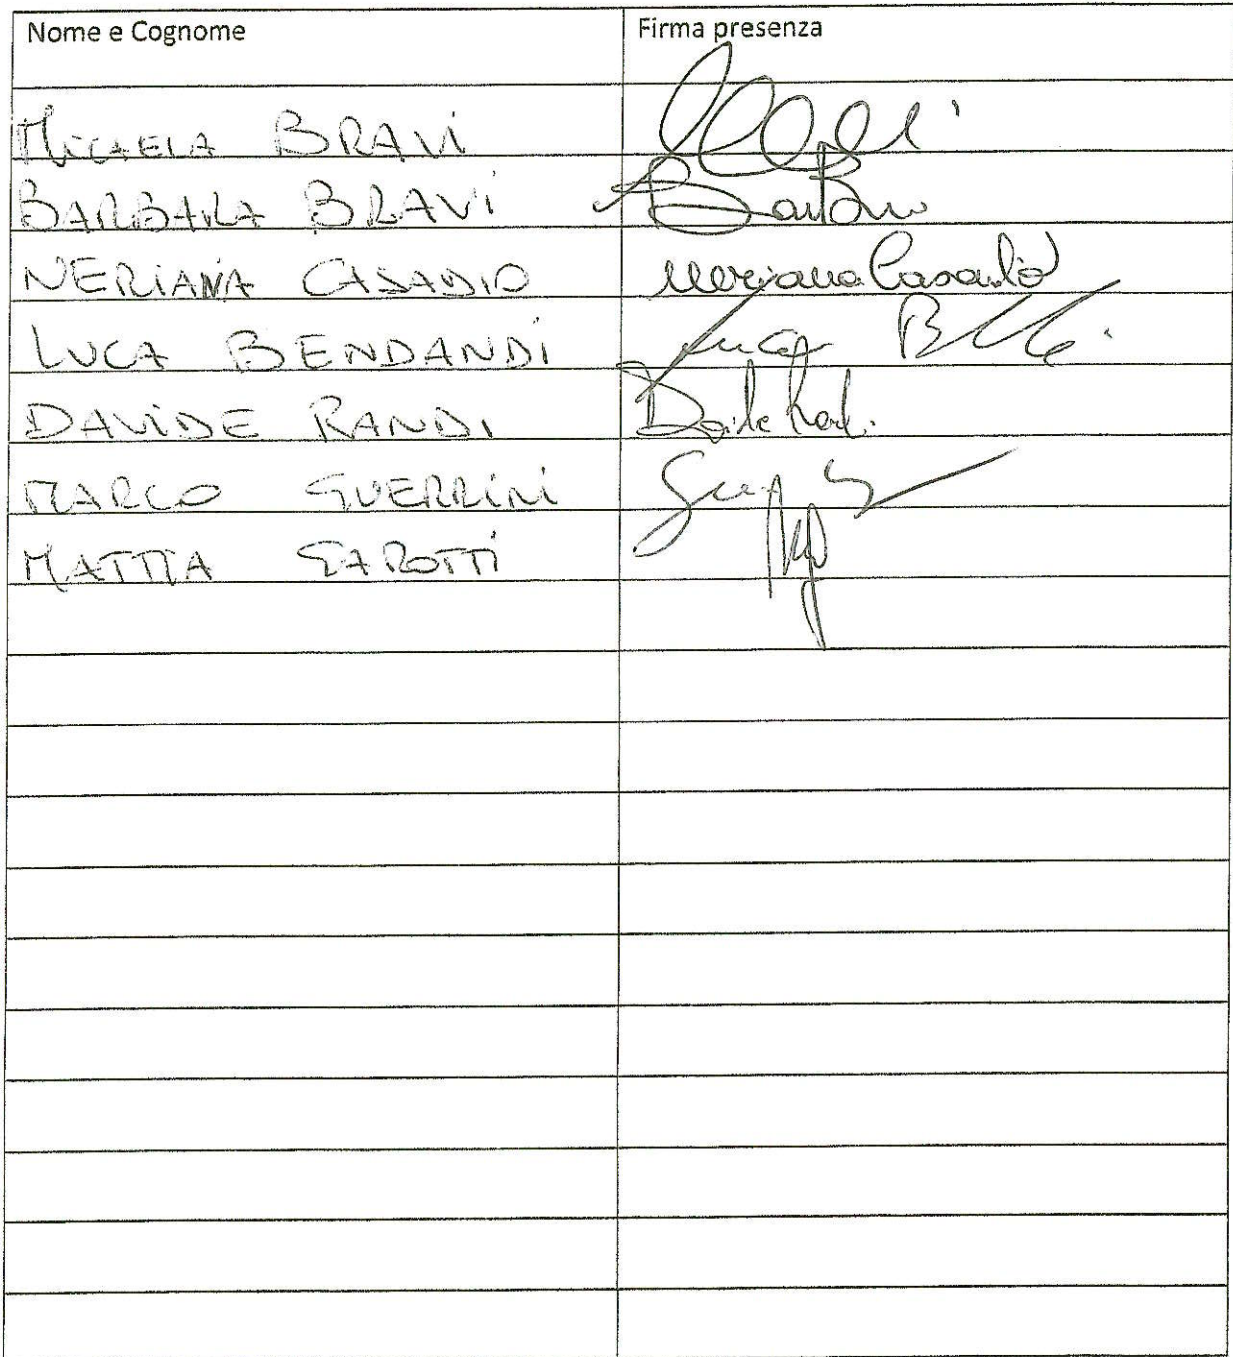 Nome e Cognome Firma presenza
MICAELA BRAVI
BARBARA BRAVI
NERIANA CASADIO Neriana Casadio
LUCA BENDANDI Luca
DAVIDE RANDI Davide Randi
MARCO GUERRINI
MATTIA GAROTTI